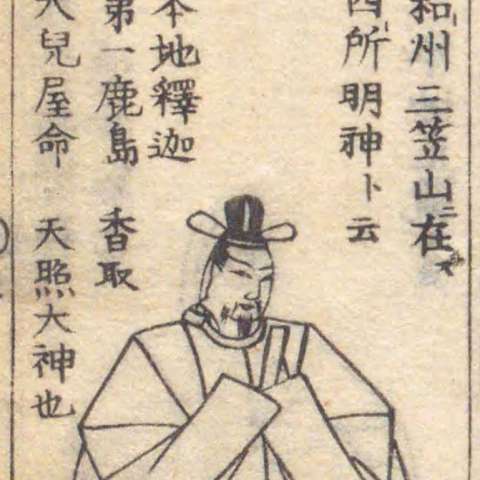 和州三笠山ニ在ス
四所明神ト云
本地釋迦
第一鹿島 香取
天兒屋命 天照大神也